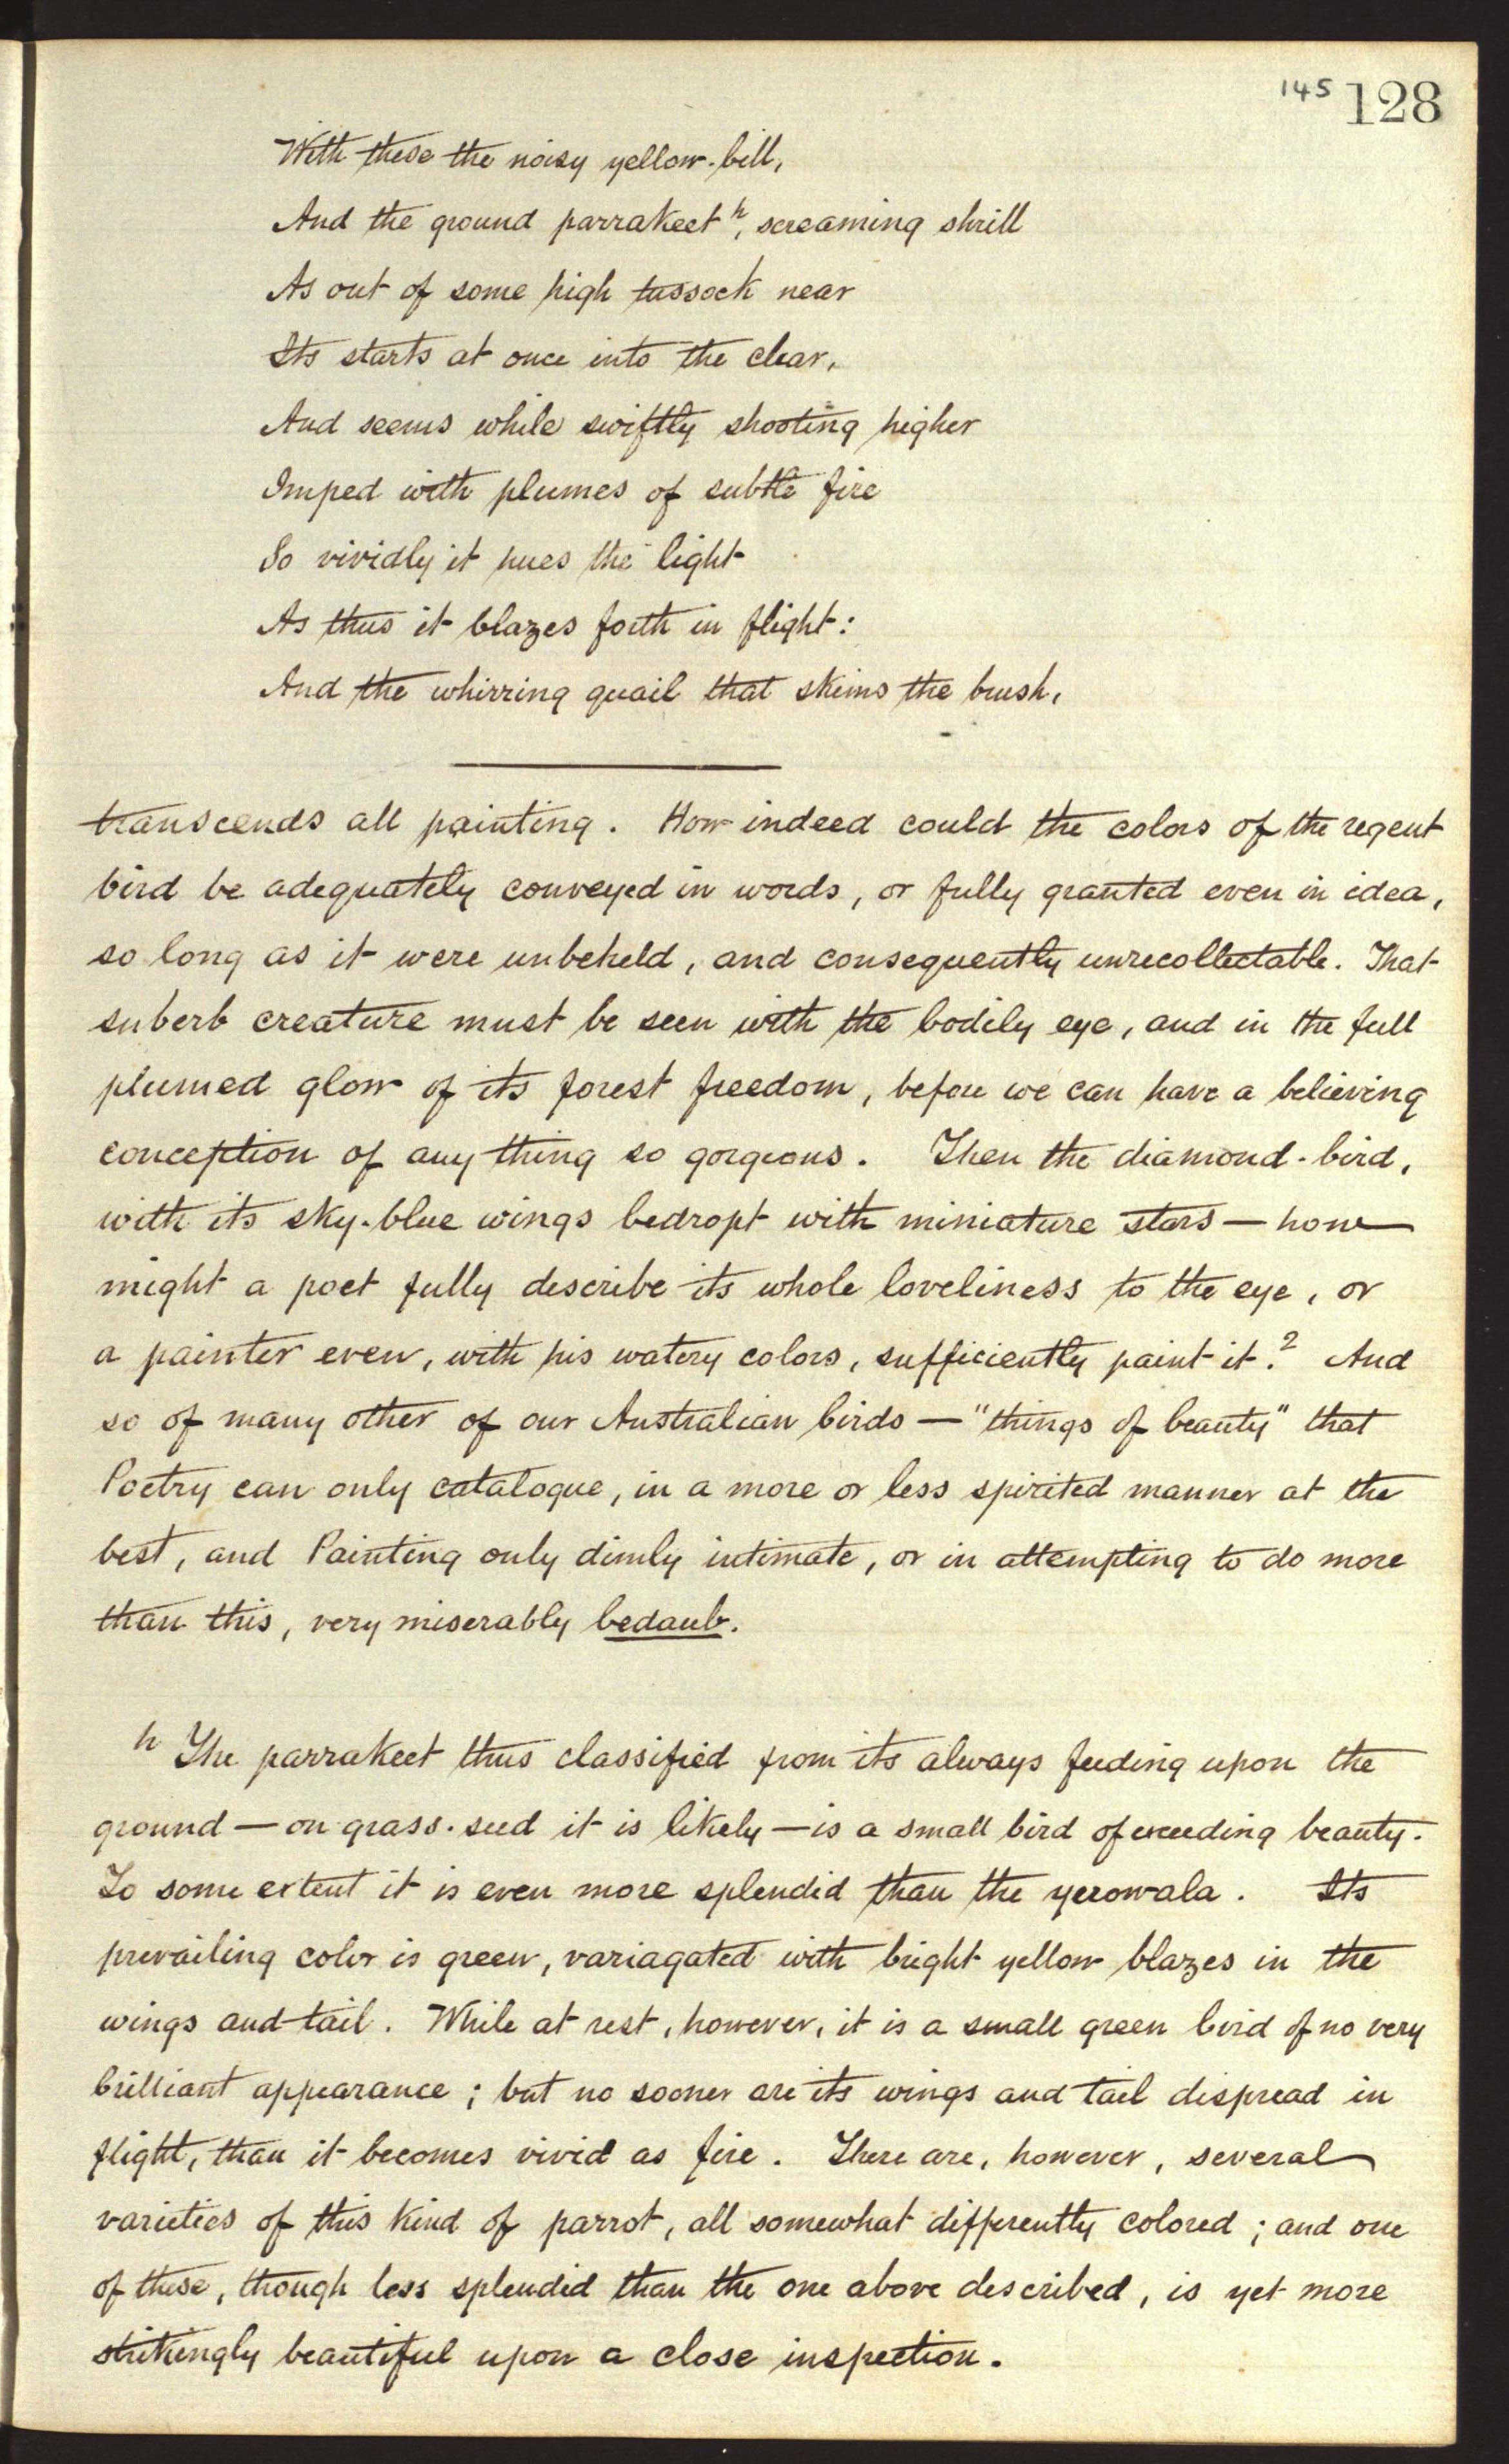 145 128
With these the noisy yellow-bill,
And the ground parrakeet h, screaming shrill
As out of some high tussock near
Its starts at once into the clear,
And seems while swiftly shooting higher
Imped with plumes of subtle fire
So vividly it hues the light
As thus it blazes forth in flight:
And the whirring quail that skims the brush,
transcends all painting. How indeed could the colors of the regent
bird be adequately conveyed in words, or fully granted even in idea,
so long as it were unbeheld, and consequently unrecollectable. That
suberb creature must be seen with the bodily eye, and in the full
plumed glow of its forest freedom, before we can have a believing
conception of any thing so gorgeous. Then the diamond-bird,
with its sky-blue wings bedropt with miniature stars — how
might a poet fully describe its whole loveliness to the eye, or
a painter even, with his watery colors, sufficiently paint it? And
so of many other of our Australian birds — "things of beauty" that
Poetry can only catalogue, in a more or less spirited manner at the
best, and Painting only dimly intimate, or in attempting to do more
than this, very miserably bedaub.
h The parrakeet thus classified from its always feeding upon the
ground — on grass-seed it is likely — is a small bird of exceeding beauty.
To some extent it is even more splendid than the yerowala. Its
prevailing color is green, variagated with bright yellow blazes in the
wings and tail. While at rest, however, it is a small green bird of no very
brilliant appearance; but no sooner are its wings and tail dispread in
flight, than it becomes vivid as fire. There are, however, several
varieties of this kind of parrot, all somewhat differently colored; and one
of these, though less splendid than the one above described, is yet more
strikingly beautiful upon a close inspection.